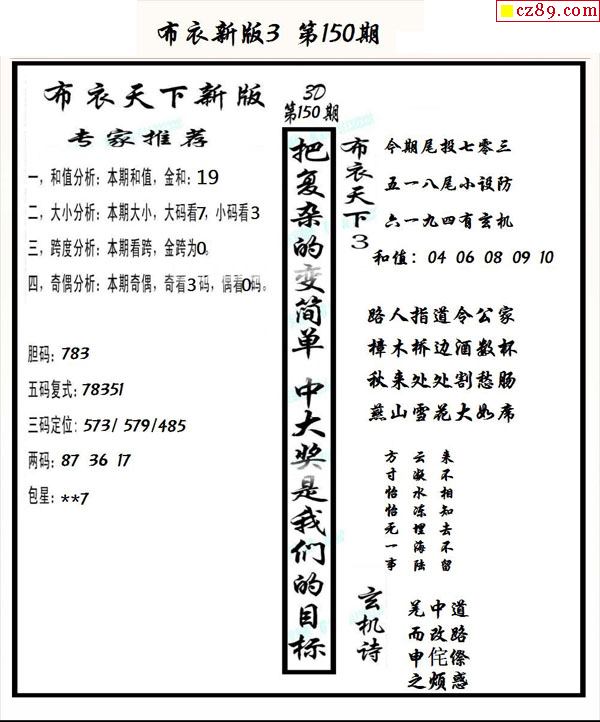 cz89.com
布衣新版3 第150期
布衣天下新版
专家推荐
一，和值分析：本期和值，金和：19
二，大小分析：本期大小，大码看7，小码看3
三，跨度分析：本期看跨，金跨为0。
四，奇偶分析：本期奇偶，奇看3码，偶看0码。
胆码：783
五码复式：78351
三码定位：573/ 579/485
两码：87 36 17
包星：**7
3D
第150期
把复杂的变简单 中大奖是我们的目标
布衣天下3
今期尾投七零三
五一八尾小设防
六一九四有玄机
和值：04 06 08 09 10
路人指道令公家
樟木桥边酒数杯
秋来处处割愁肠
燕山雪花大如席
来不相知去不留
云凝水冻埋海陆
方寸怡怡无一事
玄机诗
道路傺惑
中改侘烦
羌而申之